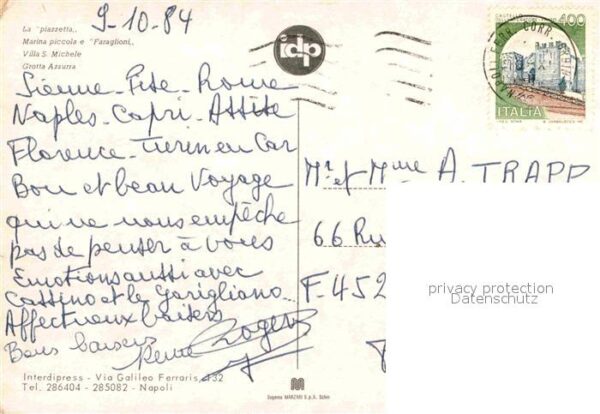 9-10-84
La "piazzetta„
Marina piccola e "Faraglioni„
Villa S. Michele
Grotta Azzurra
idp
400
ITALIA
Sienne - Pise - Rome
Naples - Capri - Assise
Florence - Turin en Car
Bon et beau Voyage
qui ne nous empêche
pas de penser à vous
Emotions aussi avec
Cassino et le Garigliano
Affectueux baisers
Bons baisers
Roger
Mr et Mme A. TRAPP
66 Ru
F-452
privacy protection
Datenschutz
Interdipress - Via Galileo Ferraris, 132
Tel. 286404 - 285082 - Napoli